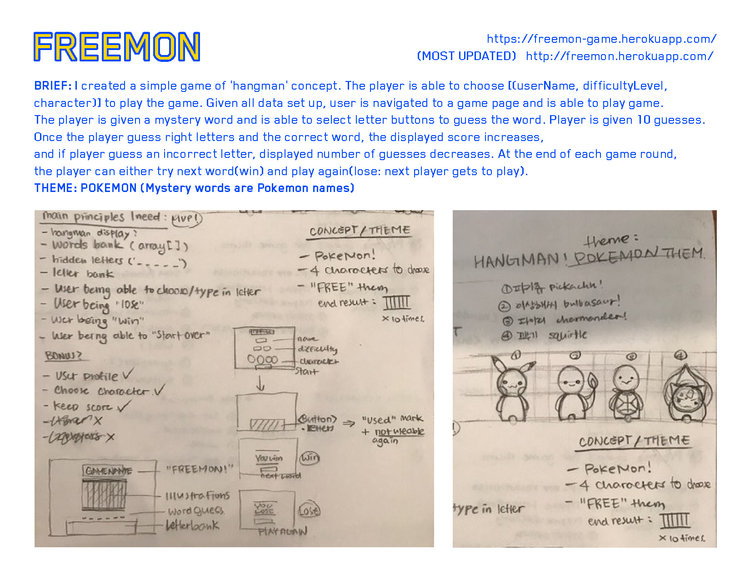 FREEMON
https://freemon-game.herokuapp.com/
(MOST UPDATED) http://freemon.herokuapp.com/
BRIEF: I created a simple game of 'hangman' concept. The player is able to choose [(userName, difficultyLevel,
character)] to play the game. Given all data set up, user is navigated to a game page and is able to play game.
The player is given a mystery word and is able to select letter buttons to guess the word. Player is given 10 guesses.
Once the player guess right letters and the correct word, the displayed score increases,
and if player guess an incorrect letter, displayed number of guesses decreases. At the end of each game round,
the player can either try next word(win) and play again(lose: next player gets to play).
THEME: POKEMON (Mystery words are Pokemon names)
main principles I need:
- hangman display?
- words bank (array[])
- hidden letters ('- - - - -')
- letter bank
- User being able to choose/type in letter
- User being "lose"
- User being "win"
- User being able to "start over"
BONUS?
- User profile ✓
- Choose character ✓
- Keep score ✓
CONCEPT/THEME
- PokeMon!
- 4 characters to choose
- "FREE" them
end result:
x 10 times
name
difficulty
character
start
(Button)
letters
⇒ "used" mark
+ not useable
again
You win
next word
Win
YOU LOSE
PLAY AGAIN
Lose
GAMENAME
"FREEMON!"
Illustrations
Word Guess
Letterbank
theme:
HANGMAN! POKEMON THEM.
① 피카츄 pickachu!
② 이상해씨 bulbasaur!
③ 파이리 charmander!
④ 꼬부기 squirtle
① ② ③ ④
CONCEPT/THEME
- PokeMon!
- 4 characters to choose
type in letter
- "FREE" them
end result:
x 10 times